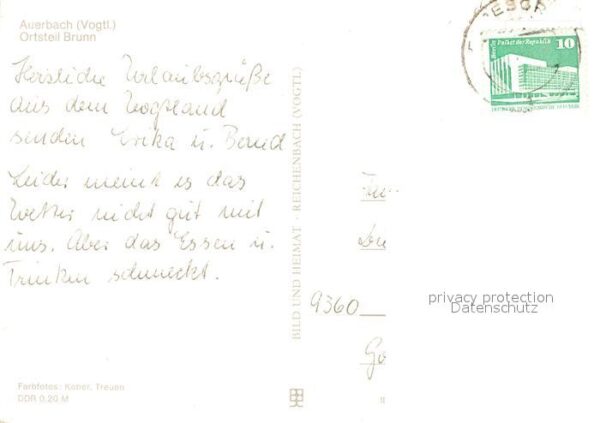 Auerbach (Vogtl.)
Ortsteil Brunn
Herzliche Urlaubsgrüße
aus dem Vogtland
senden Erika u. Bernd
Leider meint es das
Wetter nicht gut mit
uns. Aber das Essen u.
Trinken schmeckt.
BILD UND HEIMAT · REICHENBACH (VOGTL.)
Berlin Palast der Republik 10
9360
privacy protection
Datenschutz
Farbfotos: Treuen
DDR 0,20 M